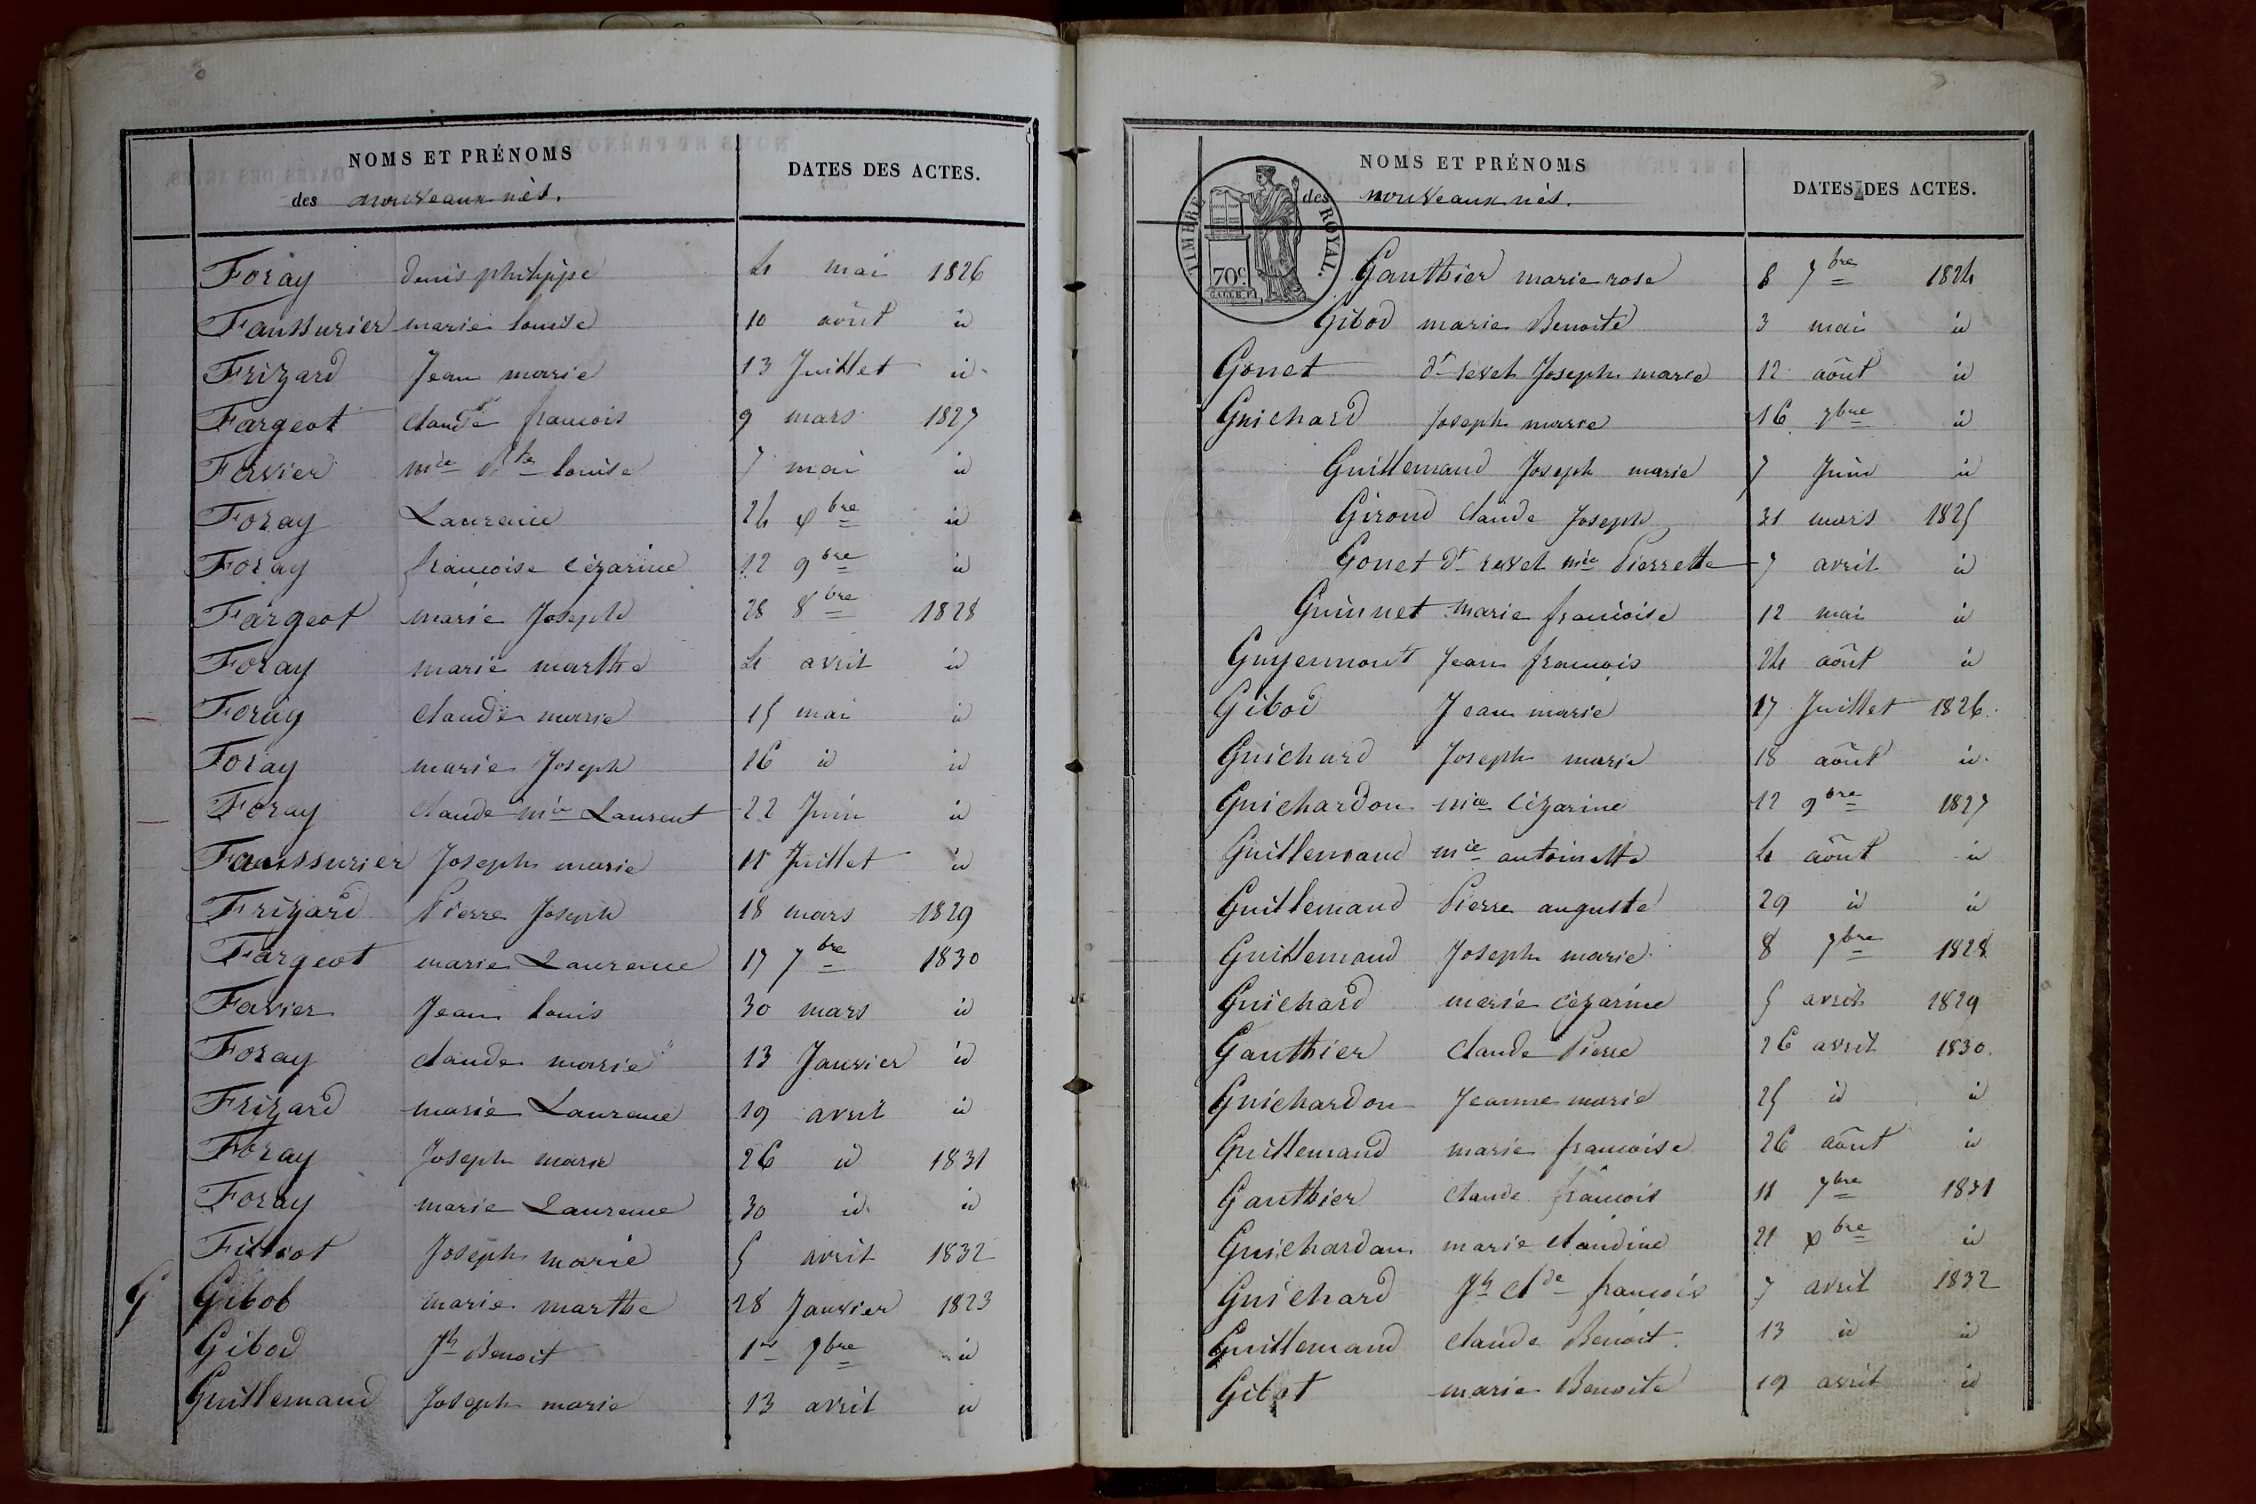 NOMS ET PRÉNOMS
des nouveaux nés.
DATES DES ACTES.
Foray denis philippe 4 mai 1826
Faussurier marie louise 10 août id
Frizard Jean marie 13 Juillet id
Fargeot claude francois 9 mars 1827
Favier mie louise 7 mai id
Foray Laurence 24 xbre id
Foray francoise Cézarine 12 9bre id
Fargeot marie Joseph 28 8bre 1828
Foray marie marthe 4 avril id
Foray claude marie 15 mai id
Foray marie Joseph 16 id id
Foray claude mie Laurent 22 Juin id
Faussurier Joseph marie 11 Juillet id
Frizard Pierre Joseph 18 mars 1829
Fargeot marie Laurence 17 7bre 1830
Favier Jean louis 30 mars id
Foray claude marie 13 Janvier id
Frizard marie Laurence 19 avril id
Foray Joseph marie 26 id 1831
Foray marie Laurence 30 id id
Joseph marie 5 avril 1832
G Gibob marie marthe 28 Janvier 1823
Gibod Jh Benoit 1er 7bre id
Guillemaud Joseph marie 13 avril id
TIMBRE ROYAL.
70c.
NOMS ET PRÉNOMS
des nouveaux nés.
DATES DES ACTES.
Gauthier marie rose 8 7bre 1824
Gibod marie Benoite 3 mai id
Gonet dt revet Joseph marie 12 août id
Guichard Joseph marie 16 7bre id
Guillemaud Joseph marie 7 Juin id
Giroud claude Joseph 31 mars 1825
Gonet dt revet mie Pierrette 7 avril id
Guinnet marie francoise 12 mai id
Guyennont Jean francois 24 août id
Gibod Jean marie 17 Juillet 1826.
Guichard Joseph marie 18 août id.
Guichardon mie Cézarine 12 9bre 1827
Guillemaud mie antoinette 4 août id
Guillemaud Pierre auguste 29 id id
Guillemaud Joseph marie 8 7bre 1828
Guichard marie cézarine 5 avril 1829
Gauthier claude Pierre 26 avril 1830.
Guichardon Jeanne marie 25 id id
Guillemaud marie francoise 26 août id
Gauthier claude francois 11 7bre 1831
Guichardon marie claudine 21 xbre id
Guichard Jh Clde francois 7 avril 1832
Guillemaud claude Benoit. 13 id id
Gibot marie Benoite 19 avril id